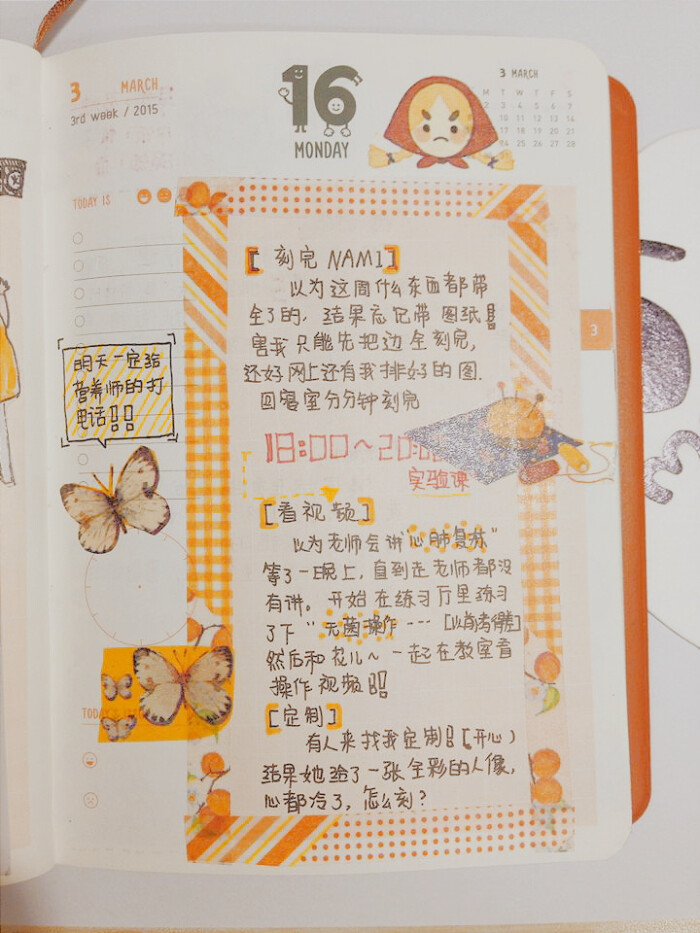 3 MARCH
3rd week / 2015
16
MONDAY
3 MARCH
M T W T F S
2 3 4 5 6 7
10 11 12 13 14
17 18 19 20 21
24 25 26 27 28
TODAY IS
3
[刻完 NAM1]
以为这周什么东西都带
全了的，结果忘记带图纸!!
害我只能先把边全刻完，
还好网上还有我排好的图.
回寝室分分钟刻完
明天一定给
营养师的打
电话!!
18:00～20:
实验课
[看视频]
以为老师会讲"心肺复苏"
等了一晚上，直到走老师都没
有讲。开始在练习万里练习
了下"无菌操作---[以前考得差]
然后和花儿～一起在教室看
操作视频!!
[定制]
有人来找我定制!(开心)
结果她给了一张全彩的人像，
心都冷了，怎么刻?
TODAY